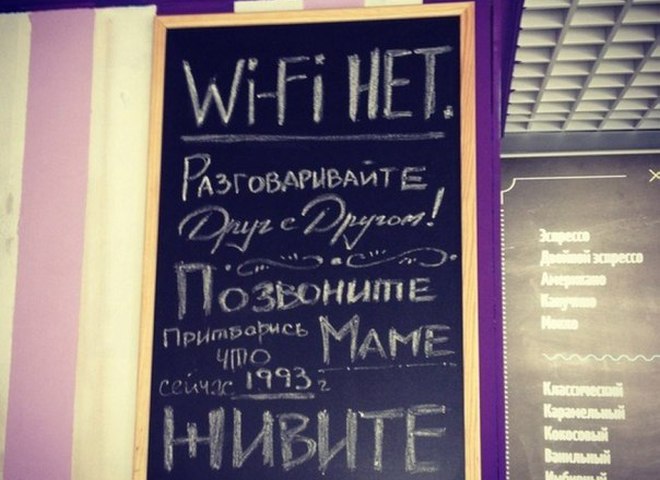 Wi-Fi НЕТ.
РАЗГОВАРИВАЙТЕ
Друг с Другом!
ПОЗВОНИТЕ
МАМЕ
Притворись
что
сейчас 1993 г
ЖИВИТЕ
Эспрессо
Двойной эспрессо
Американо
Капучино
Мокко
Классический
Карамельный
Кокосовый
Ванильный
Имбирный